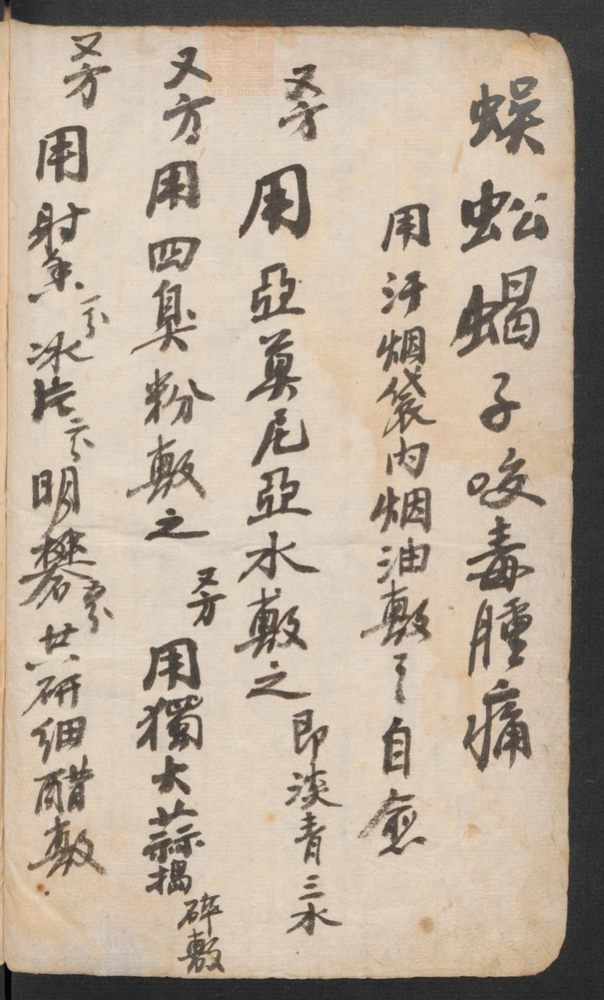 蜈蚣蝎子咬毒腫痛
用汗烟袋内烟油敷了自愈
又方 用亞莫尼亞水敷之 即淡青三水
又方用四臭粉敷之 又方 用獨大蒜搗碎敷
又方 用射香一分 冰片 明礬 共研细醋敷